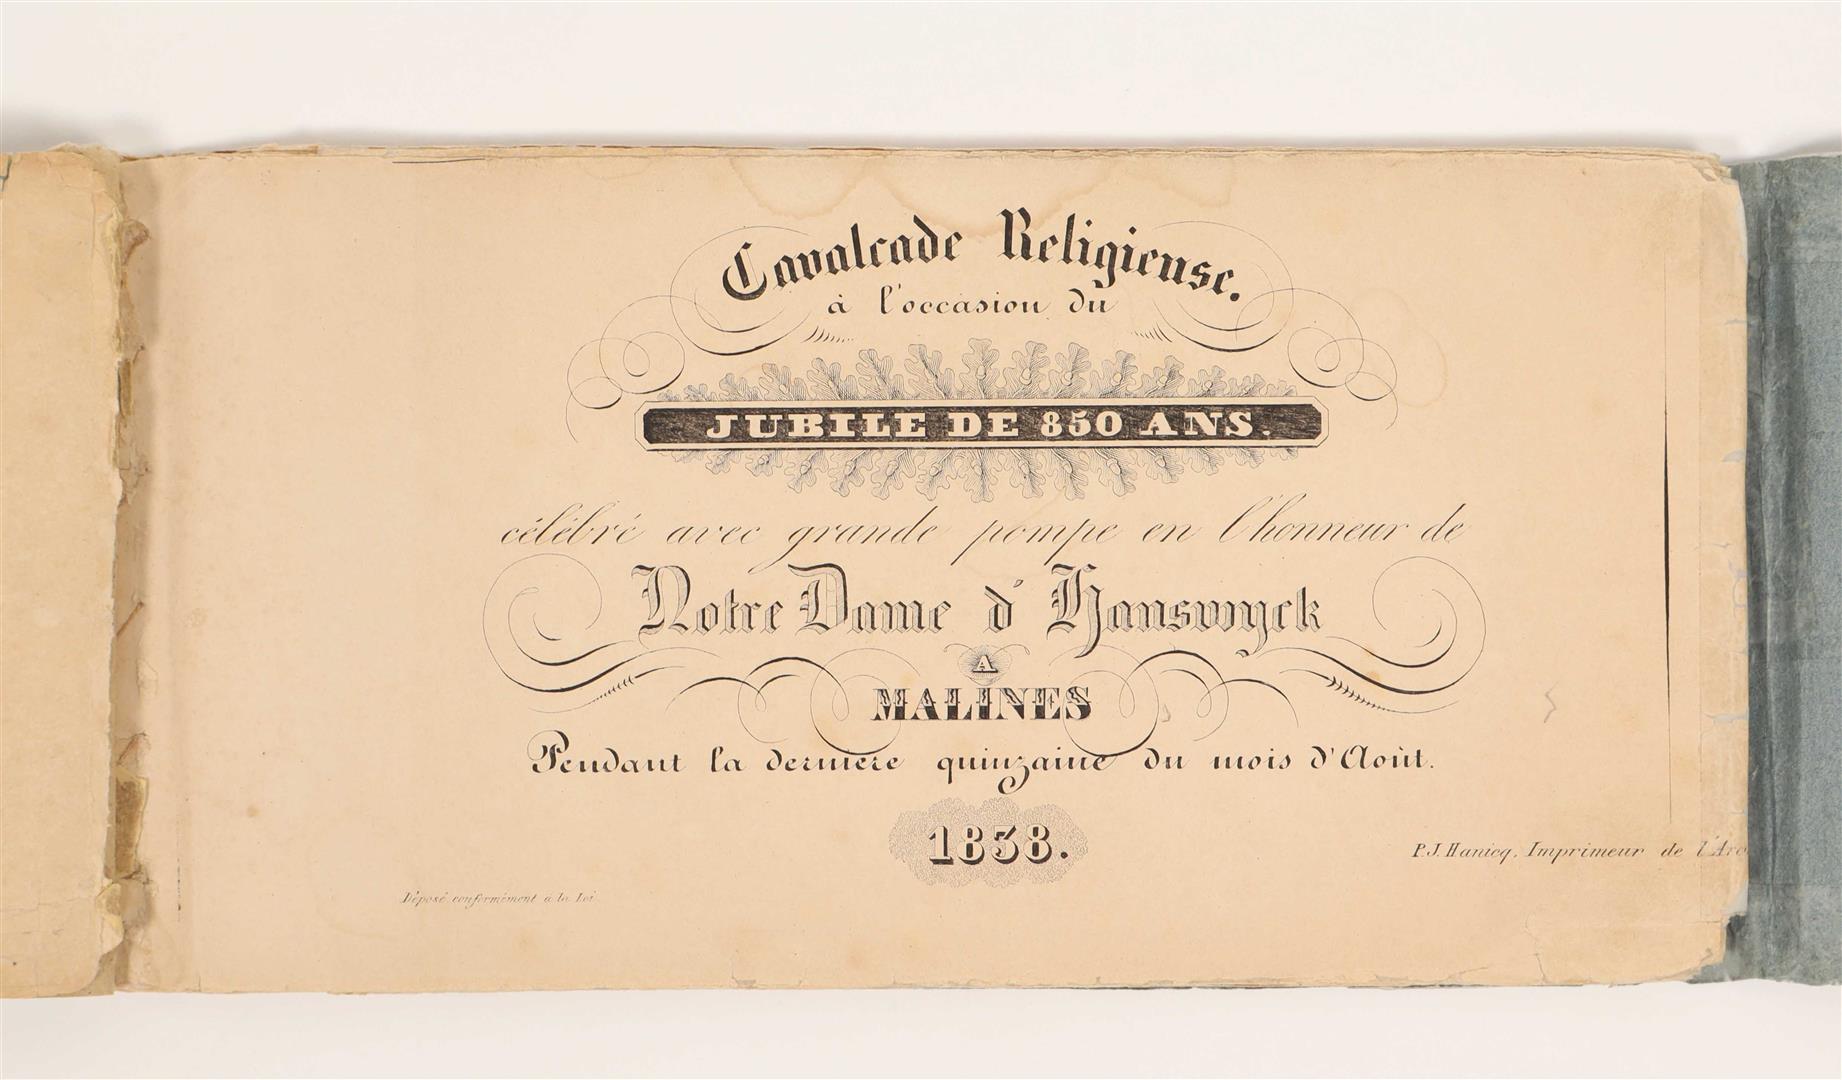 Cavalcade Religieuse.
à l'occasion du
JUBILE DE 850 ANS.
célébré avec grande pompe en l'honneur de
Notre Dame d'Hanswyck
A
MALINES
Pendant la dernière quinzaine du mois d'Août.
1838.
P. J. Hanicq, Imprimeur de l'Arc
Déposé conformément à la Loi